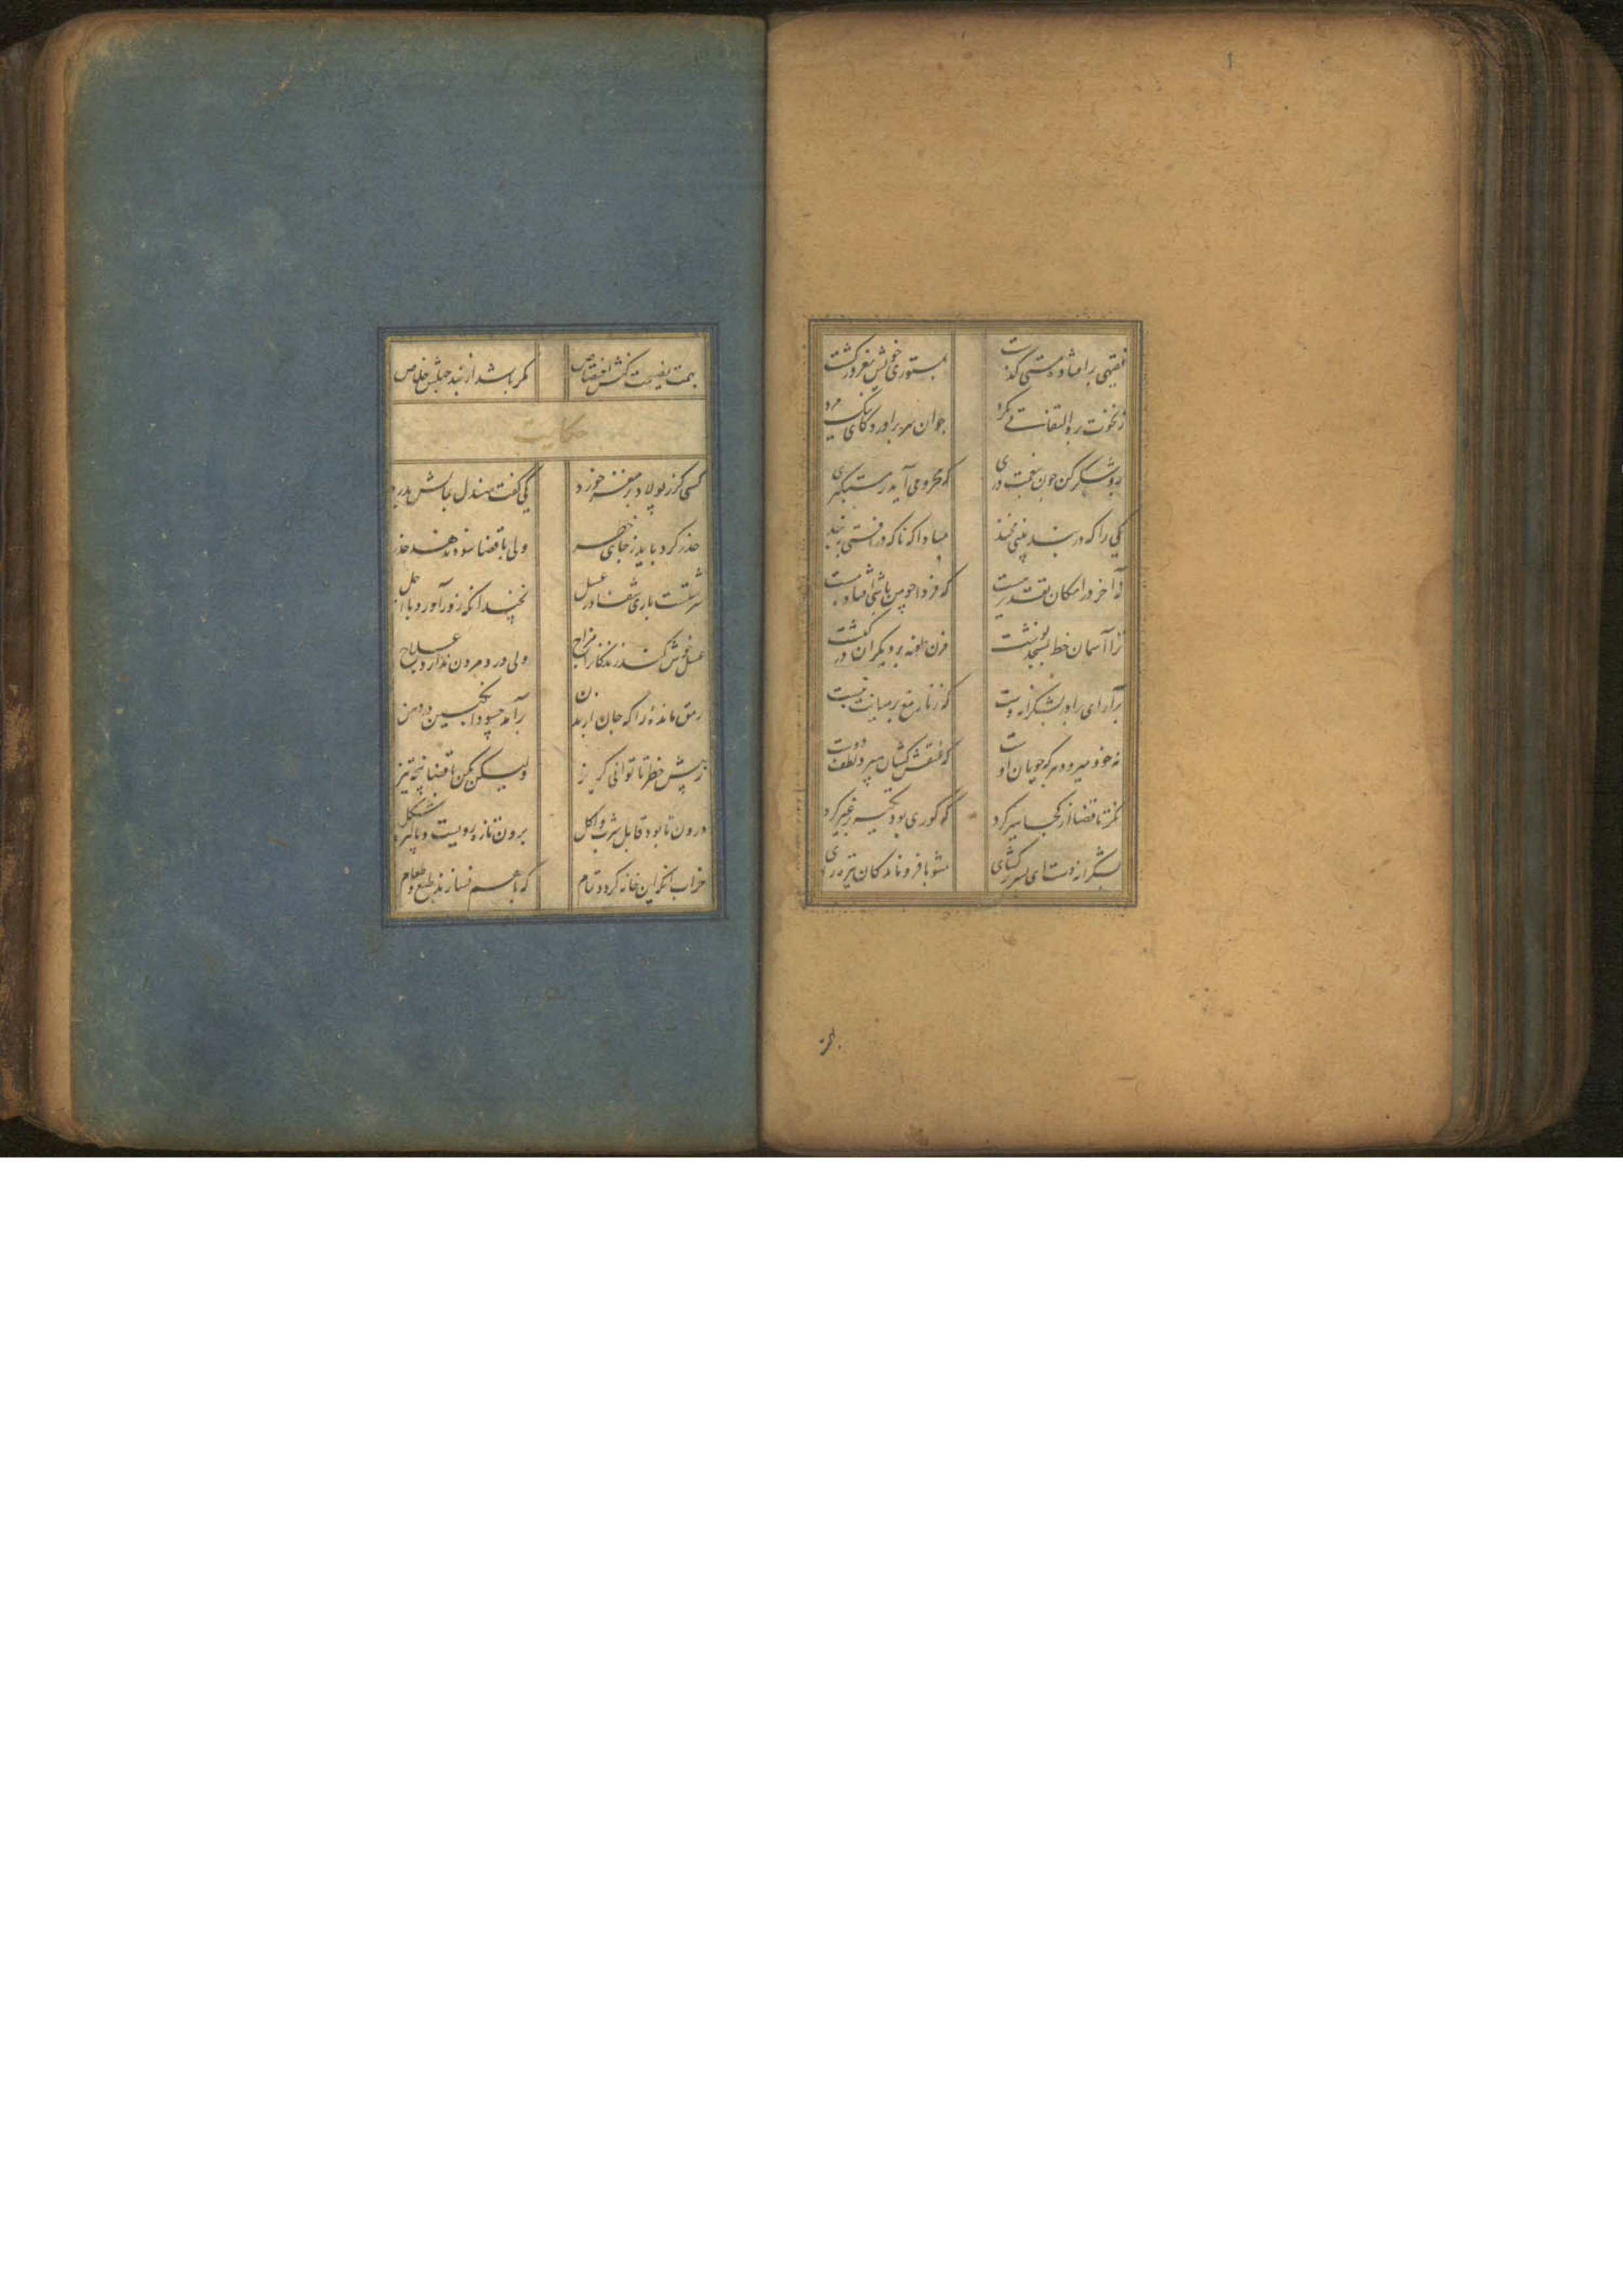 فقیهی بر افتاده مستی گذشت بمستوری خویش مغرور گشت
زنخوت برو التفاتی نکرد جوان سر براورد کای نیک مرد
برو شکر کن چون بنعمت دری که محرومی آید ز مستکبری
یکی را که در بند بینی مخند مبادا که ناکه در افتی به بند
نه آخر در امکان تقدیر هست که فردا چو من باشی افتاده مست
ترا آسمان خط بمسجد نوشت مزن طعنه بر دیکران در کنشت
برآر ای برادر بشکرانه دست که زنار مغ بر میانت نبست
نه خود میرود هر که جویان اوست که عنفش کشان میبرد لطف دوست
نکر تا قضا از کجا سیر کرد که کوری بود تکیه بر غیر کرد
بشکرانه دست ای پسر کشای مشو با فرو ماندکان تیره رای
بهمت
بهمت نصیحت کنش اختصاص مکر باشد از بند حبسش خلاص
حکایت
کسی کرز پولاد بر مغز خورد یکی گفت صندل بمالش بدرد
حذر کرد باید ز جای خطر ولی با قضا سود ندهد حذر
سرشتست باری شفا در عسل نچندانکه زور آورد با اجل
عسل خوش کند زندکانرا مزاج ولی درد مردن ندارد علاج
رمق ماندهٔ را که جان از بدن برآمد چه سود انکبین در دهن
ز پیش خطر تا توانی کریز ولیکن مکن با قضا پنجه تیز
درون تا بود قابل شرب و اکل برون تازه رویست و پاکیزه شکل
خراب آنکه این خانه کردد تمام که با هم نسازند طبع و طعام